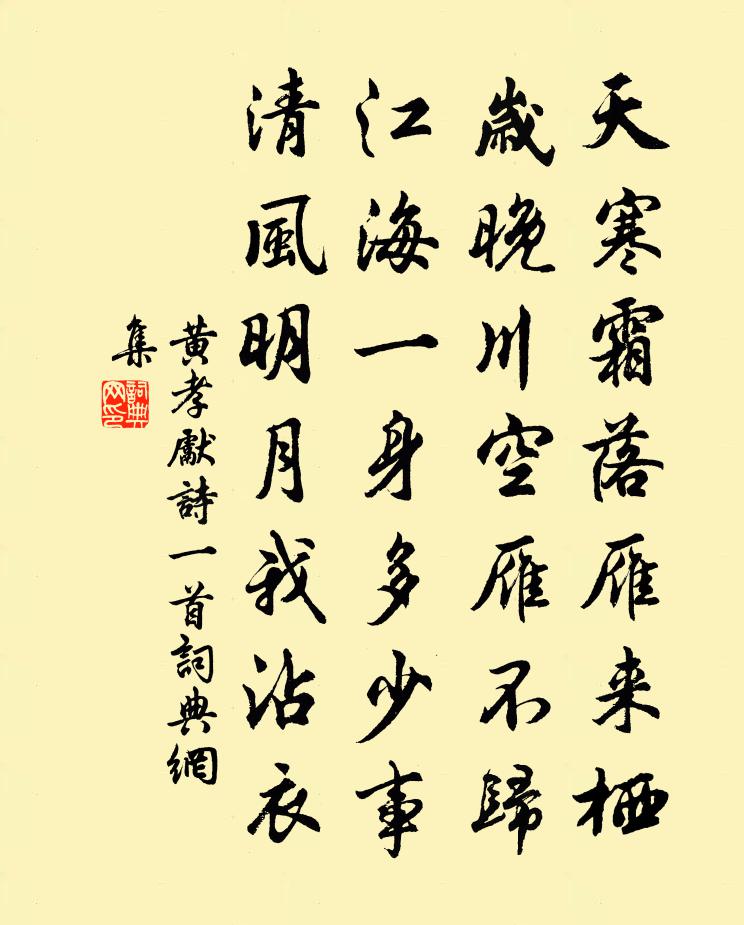 天寒霜落雁来栖
歲晚川空雁不歸
江海一身多少事
清風明月我沾衣
黄孝獻詩一首詞典網
集
詞典網印